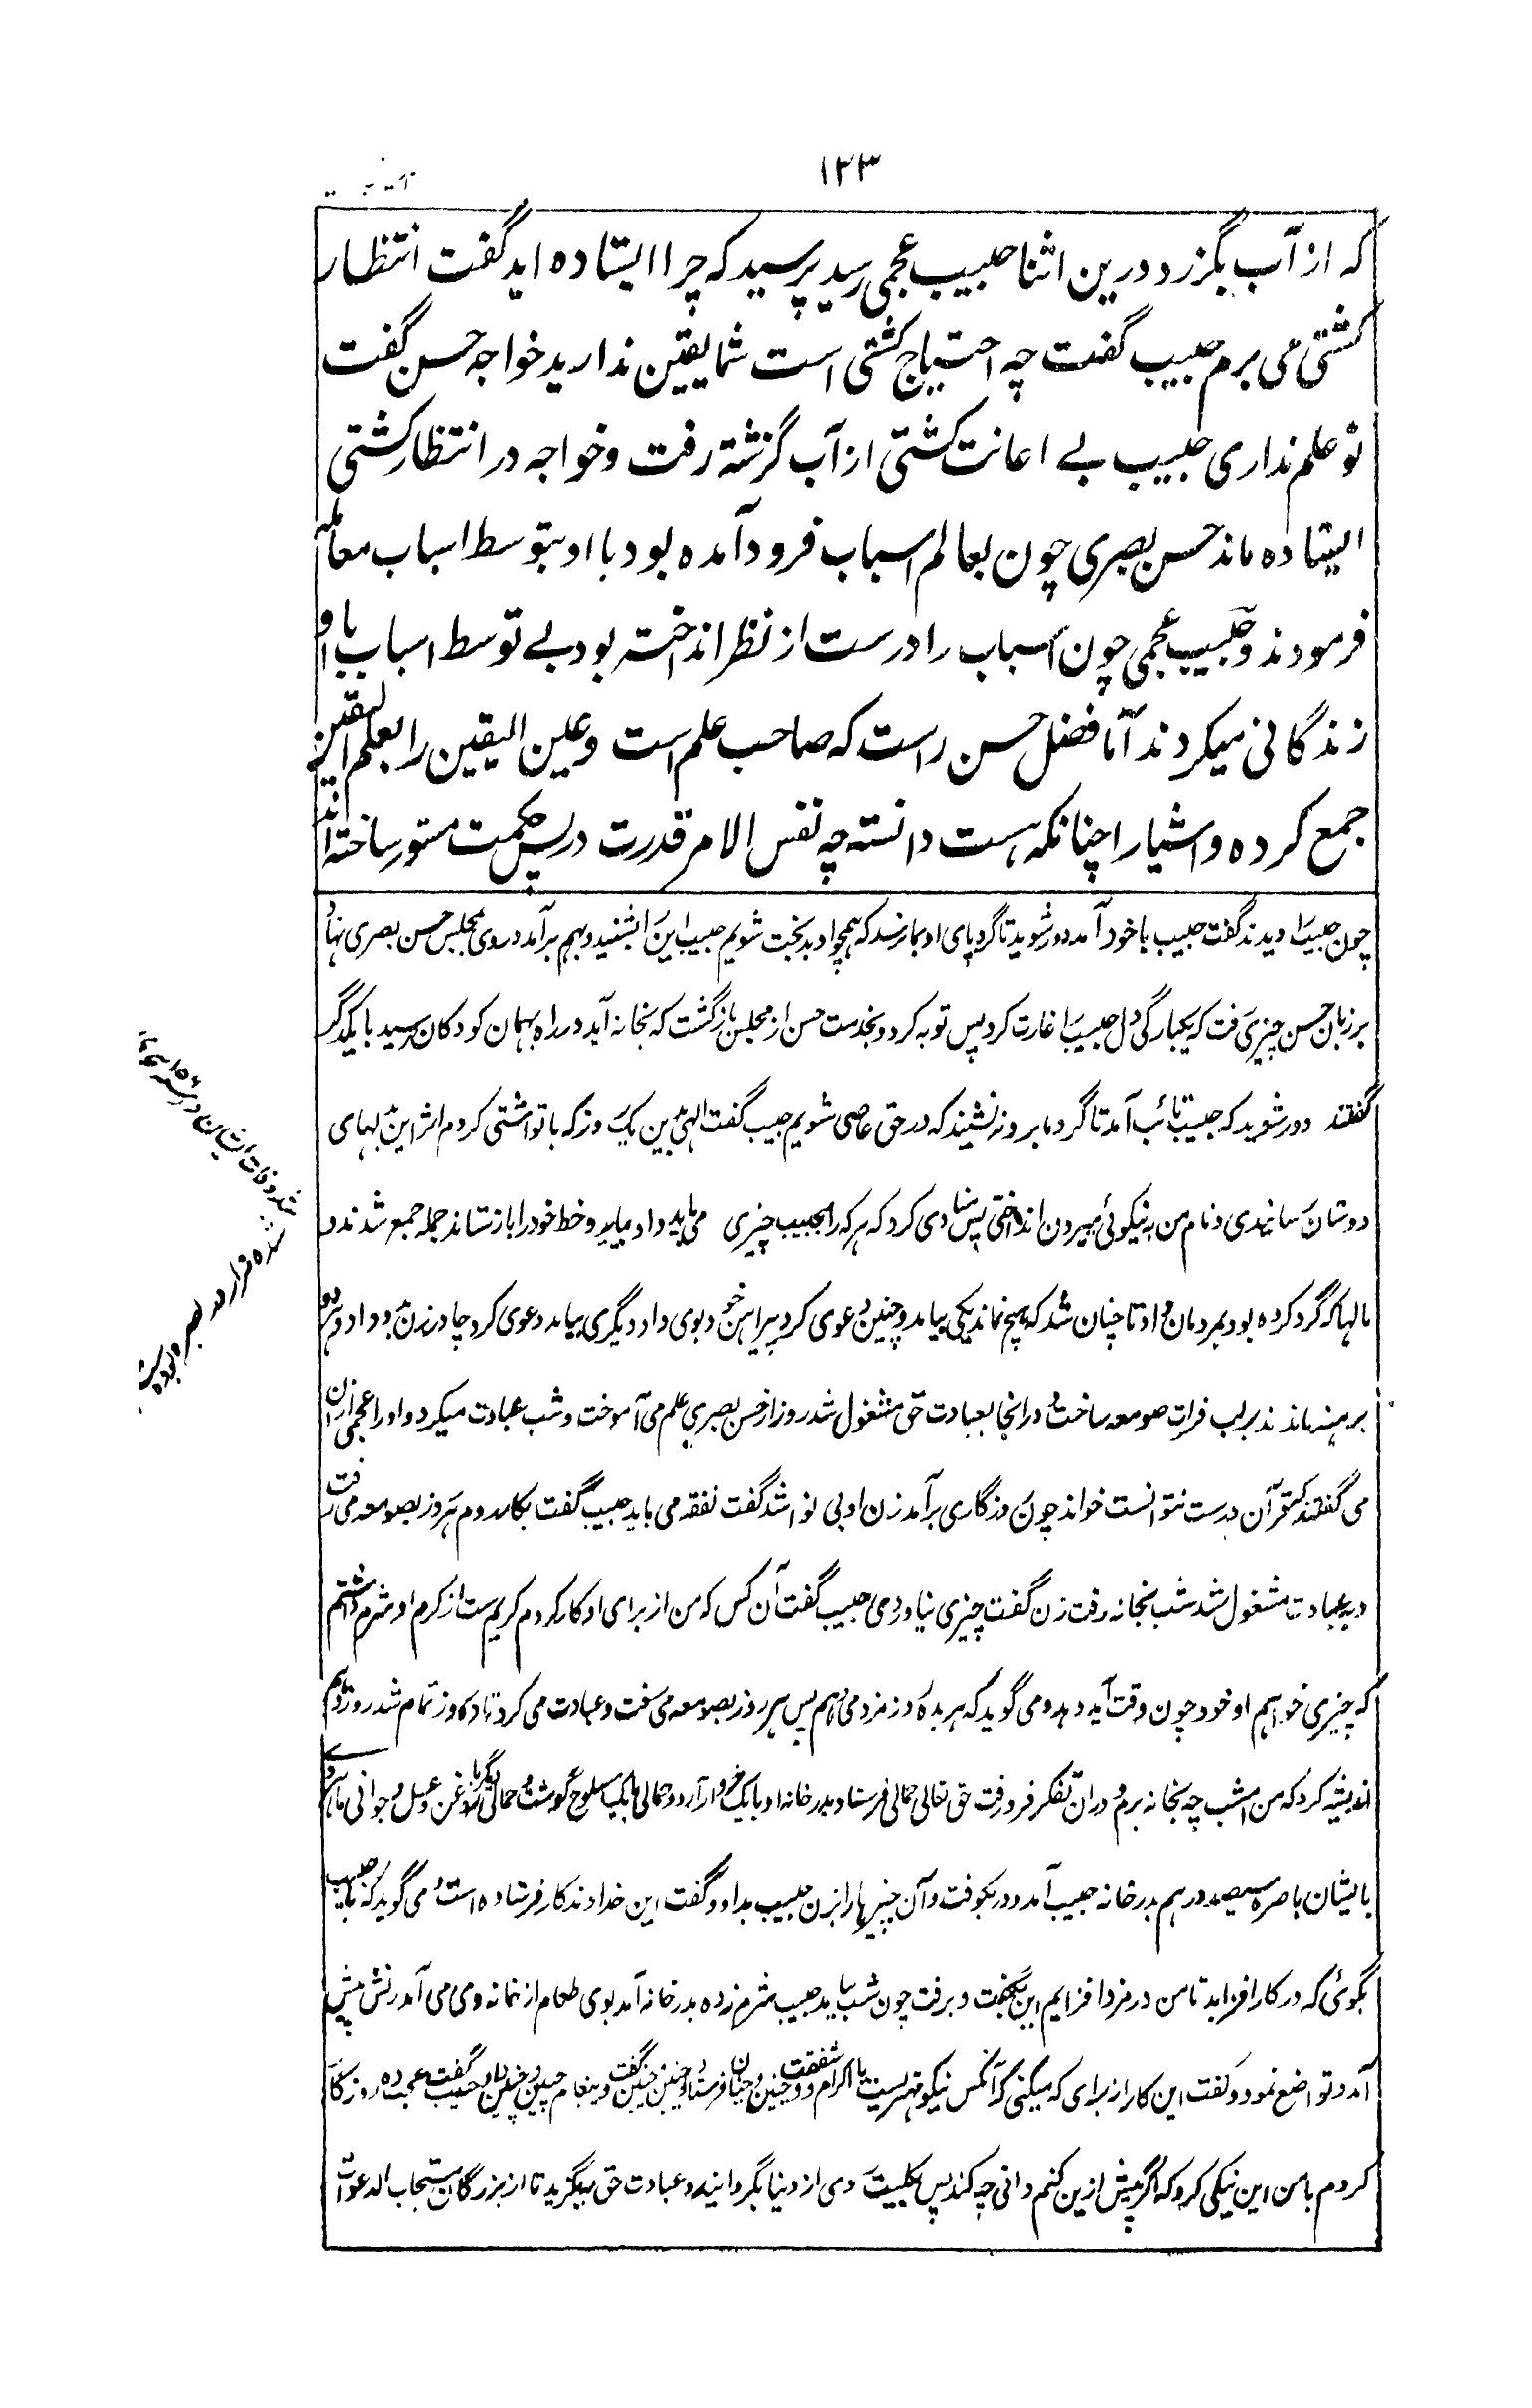 ۱۲۳
که از آب بگزرد درین اثنا حبیب عجمی رسید پرسید که چرا ایستاده اید گفت انتظار
کشتی می برم حبیب گفت چه احتیاج کشتی است شما یقین ندارید خواجه حسن گفت
تو علم نداری حبیب بے اعانت کشتی از آب گزشته رفت و خواجه در انتظار کشتی
ایستاده ماند حسن بصری چون بعالم اسباب فرود آمده بود با او بتوسط اسباب معامله
فرمودند و حبیب عجمی چون اسباب را درست از نظر انداخته بود بے توسط اسباب با او
زندگانی میکردند اما فضل حسن راست که صاحب علم است و عین الیقین را بعلم الیقین
جمع کرده و اشیا را چنانکه هست دانسته چه نفس الامر قدرت در پس حکمت مستور ساخته اند
چون حبیب را دیدند گفت حبیب با خود آمد دور شوید تا گرد پای او بما نرسد که همچو او بدبخت شویم حبیب این را بشنید و بهم برآمد روی بمجلس حسن بصری نهاد
بر زبان حسن چیزی رفت که یکبارگی دل حبیب را غارت کرد پس توبه کرد و بخدمت حسن از مجلس بازگشت که بخانه آید در راه بهمان کودکان رسید با یکدیگر
گفتند دور شوید که حبیب تائب آمد تا گرد ما برو نه نشیند که در حق عاصی شویم حبیب گفت الهی بدین یک روز که با تو آشتی کردم اثر این بدلهای
دوستان رسانیدی و نام من به نیکوئی بیرون انداختی پس منادی کرد که هر که را بحبیب چیزی می باید داد بیاید و خط خود را باز ستاند جمله جمع شدند و
مالها که گرد کرده بود بمردمان داد تا چنان شد که هیچ نماند یکی بیامد و چنین دعوی کرد پیراهن خود بوی داد دیگری بیامد دعوی کرد چادر زن بدو داد و هر دو
برهنه ماندند بر لب فرات صومعه ساخت و در انجا بعبادت حق مشغول شد روز از حسن بصری علم می آموخت و شب عبادت میکرد و او را عجمی ازان
می گفتند که قرآن درست نتوانست خواند چون روزگاری برآمد زن او بی نوا شد گفت نفقه می باید حبیب گفت بکار روم هر روز بصومعه می رفت
و بعبادت مشغول شد شب بخانه رفت زن گفت چیزی نیاوردی حبیب گفت آن کس که من از برای او کار کردم کریم ست از کرم او شرم داشتم
که چیزی خواهم او خود چون وقت آید دهد و می گوید که هر بده روز مزد می دهم پس هر روز بصومعه می رفت و عبادت می کرد تا ده روز تمام شد روز دهم
اندیشه کرد که من امشب چه بخانه برم و دران تفکر فرو رفت حق تعالی حمالی فرستاد بدر خانه او با یک خروار آرد و حمالی با یک مسلوخ گوشت و حمالی دیگر با روغن و عسل و جوانی ماهروی
بایشان با صره سیصد درهم بدر خانه حبیب آمد و در بکوفت و آن چیزها را بزن حبیب بداد و گفت این خداوند کار فرستاده است و می گوید که با حبیب
بگوئی که در کار افزاید تا من در مزد افزایم این بگفت و برفت چون شب بیامد حبیب شرم زده بدر خانه آمد بوی طعام از خانه وی می آمد زنش پیش
آمد و تواضع نمود و گفت این کار از برای که میکنی که آنکس نیکو مهتریست با اکرام و شفقت چنین و چنان فرستاد و چنین چنین گفت و پیغام چنین چنین داد حبیب گفت عجب ده روز کار
کردم با من این نیکی کرد که اگر بیش ازین کنم دانی چه کند پس بکلیت روی از دنیا بگردانید و عبادت حق بگزید تا از بزرگان مستجاب الدعوات
شد و وفات ایشان در
شده قرار در بصره بوده است